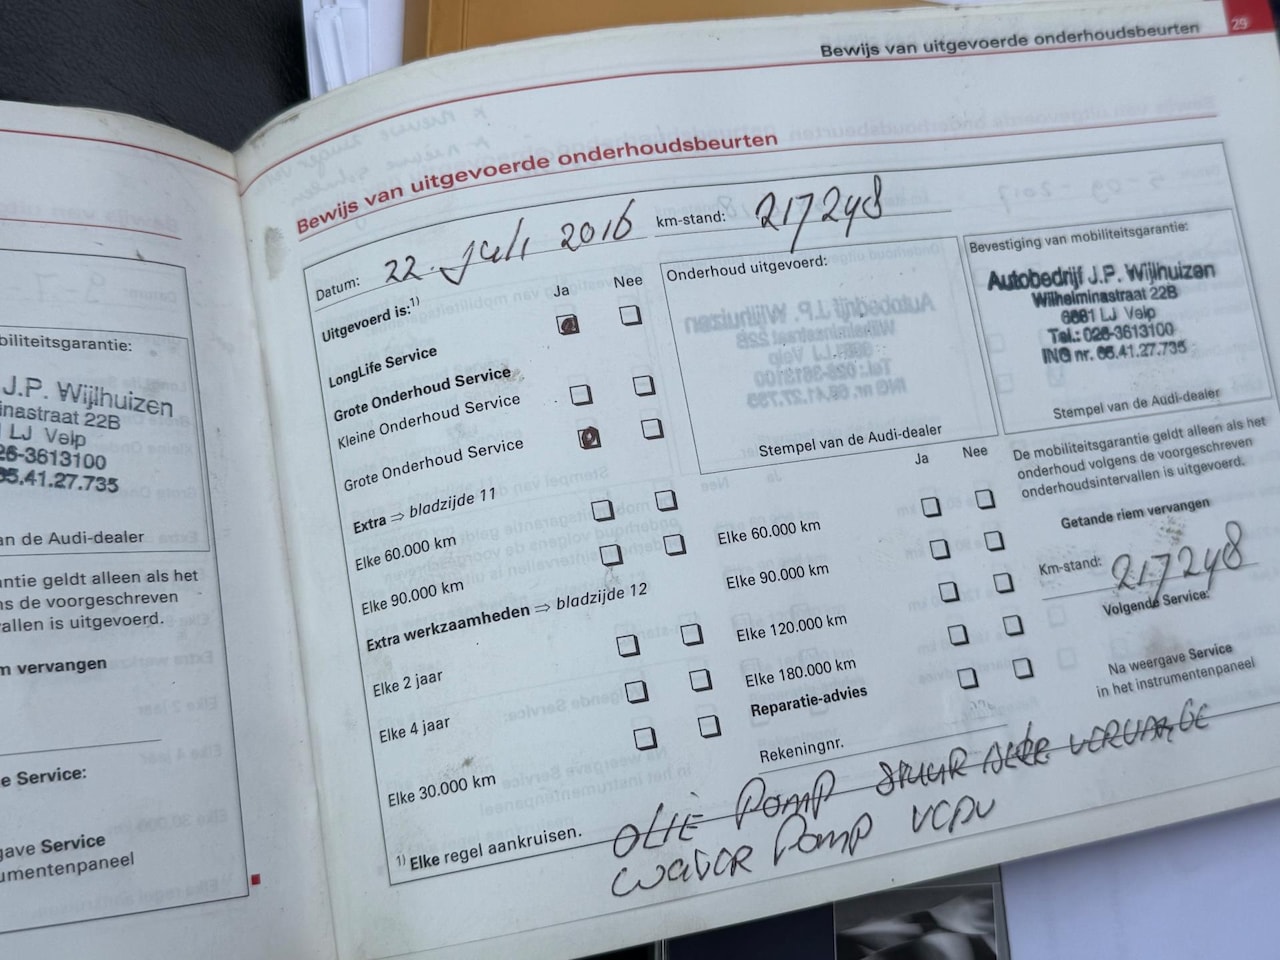 29
Bewijs van uitgevoerde onderhoudsbeurten
Bewijs van uitgevoerde onderhoudsbeurten
Datum: 22 Juli 2016
km-stand: 217248
Uitgevoerd is:1)
Ja Nee
LongLife Service
Grote Onderhoud Service
Kleine Onderhoud Service
Grote Onderhoud Service
Extra ⇒ bladzijde 11
Elke 60.000 km
Elke 90.000 km
Extra werkzaamheden ⇒ bladzijde 12
Elke 2 jaar
Elke 4 jaar
Elke 30.000 km
1) Elke regel aankruisen.
Onderhoud uitgevoerd:
Stempel van de Audi-dealer
Ja Nee
Elke 60.000 km
Elke 90.000 km
Elke 120.000 km
Elke 180.000 km
Reparatie-advies
Rekeningnr.
Bevestiging van mobiliteitsgarantie:
Autobedrijf J.P. Wijlhuizen
Wilhelminastraat 22B
6881 LJ Velp
Tel.: 026-3613100
ING nr. 65.41.27.735
Stempel van de Audi-dealer
De mobiliteitsgarantie geldt alleen als het
onderhoud volgens de voorgeschreven
onderhoudsintervallen is uitgevoerd.
Getande riem vervangen
Km-stand: 217248
Volgende Service:
Na weergave Service
in het instrumentenpaneel
OLIE POMP STUUR
POMP
biliteitsgarantie:
J.P. Wijlhuizen
inastraat 22B
LJ Velp
26-3613100
65.41.27.735
an de Audi-dealer
antie geldt alleen als het
ns de voorgeschreven
vallen is uitgevoerd.
m vervangen
e Service:
gave Service
umentenpaneel